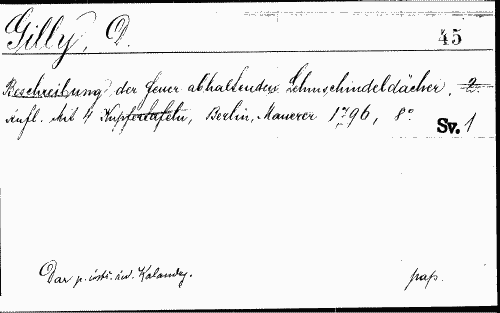 Gilly, D. 45
Beschreibung der feuer abhaltenden Lehmschindeldächer. 2.
Aufl. Mit 4 Kupfertafeln, Berlin, Maurer 1796, 8°
Sv. 1
Dar p. inž. Kalanday. pap.